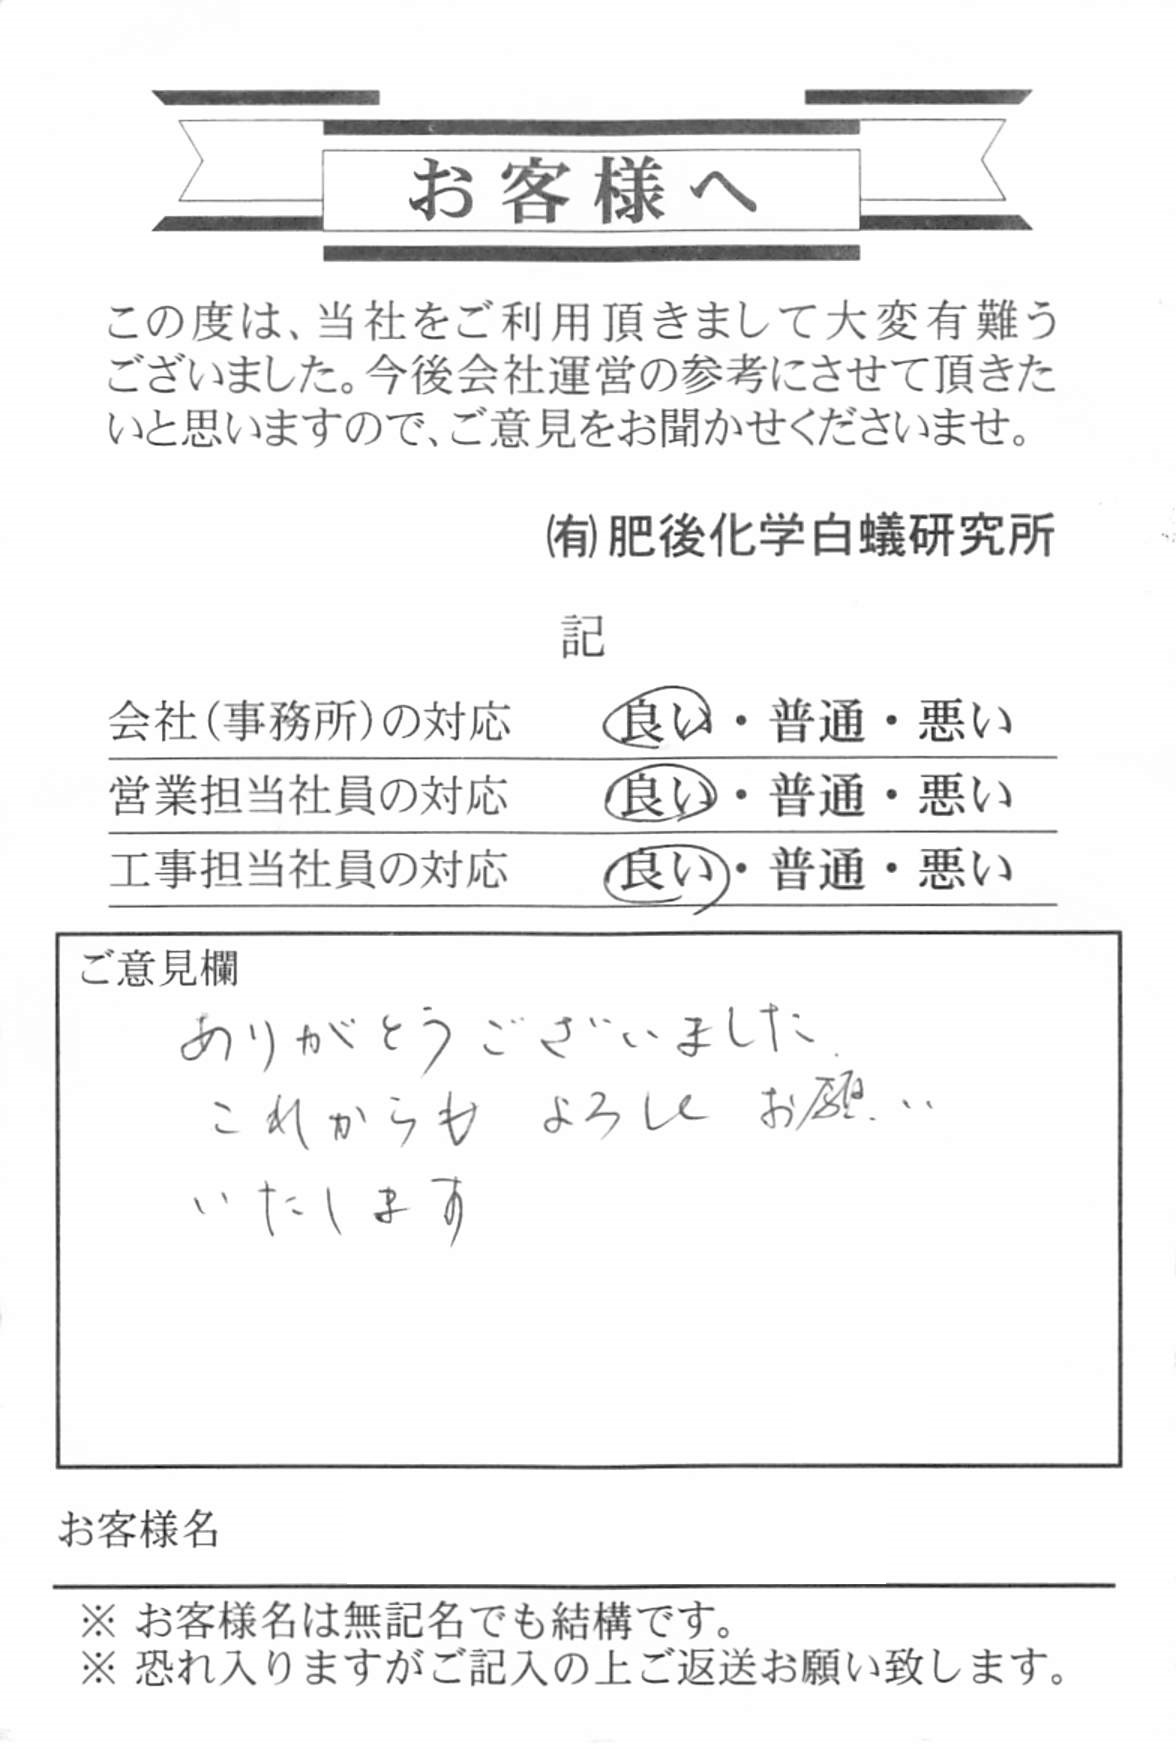 お客様へ
この度は、当社をご利用頂きまして大変有難う
ございました。今後会社運営の参考にさせて頂きた
いと思いますので、ご意見をお聞かせくださいませ。
㈲肥後化学白蟻研究所
記
会社(事務所)の対応 良い・普通・悪い
営業担当社員の対応 良い・普通・悪い
工事担当社員の対応 良い・普通・悪い
ご意見欄
ありがとうございました.
これからも よろしく お願い
いたします
お客様名
※ お客様名は無記名でも結構です。
※ 恐れ入りますがご記入の上ご返送お願い致します。